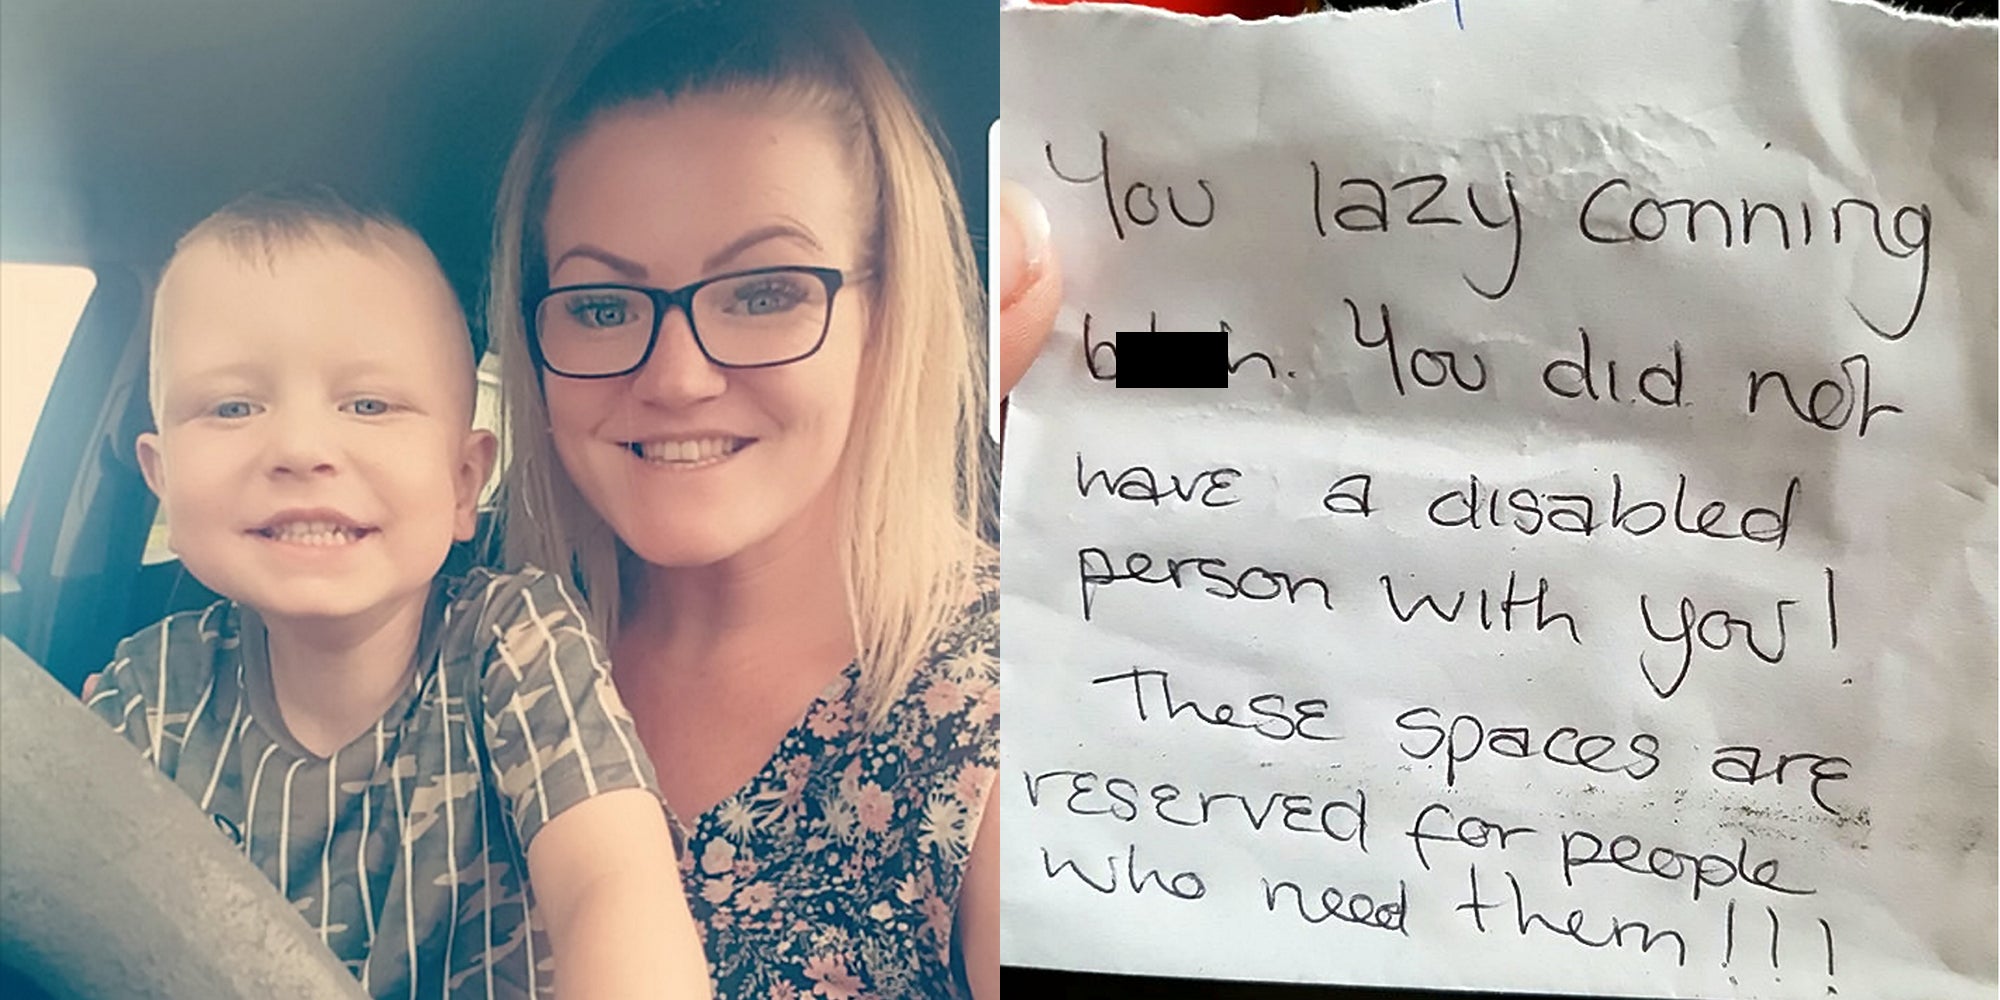 You lazy conning
b h. You did not
have a disabled
person with you!
These spaces are
reserved for people
who need them!!!